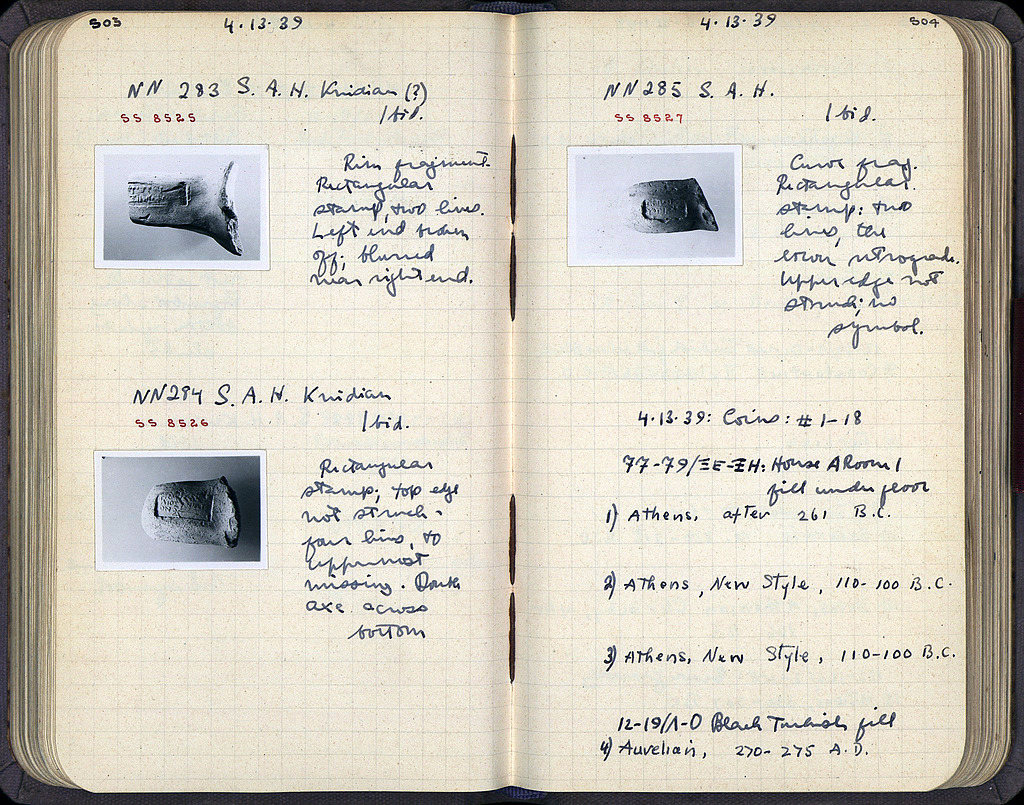 503
4·13·39
NN 283 S. A. H. Knidian (?)
SS 8525
Ibid.
Rim fragment.
Rectangular
stamp, two lines.
Left end broken
off; blurred
near right end.
NN284 S. A. H. Knidian
SS 8526
Ibid.
Rectangular
stamp; top edge
not struck.
four lines, to
uppermost
missing. Double
axe across
bottom
4·13·39
504
NN285 S. A. H.
SS 8527
Ibid.
Curve frag.
Rectangular
stamp: two
lines, the
lower retrograde.
Upper edge not
struck; no
symbol.
4·13·39: Coins: #1-18
77-79/ΞE-ΞH: House A Room 1
fill under floor
1) Athens, after 261 B.C.
2) Athens, New Style, 110-100 B.C.
3) Athens, New Style, 110-100 B.C.
12-19/Λ-O Black Turkish fill
4) Aurelian, 270-275 A.D.